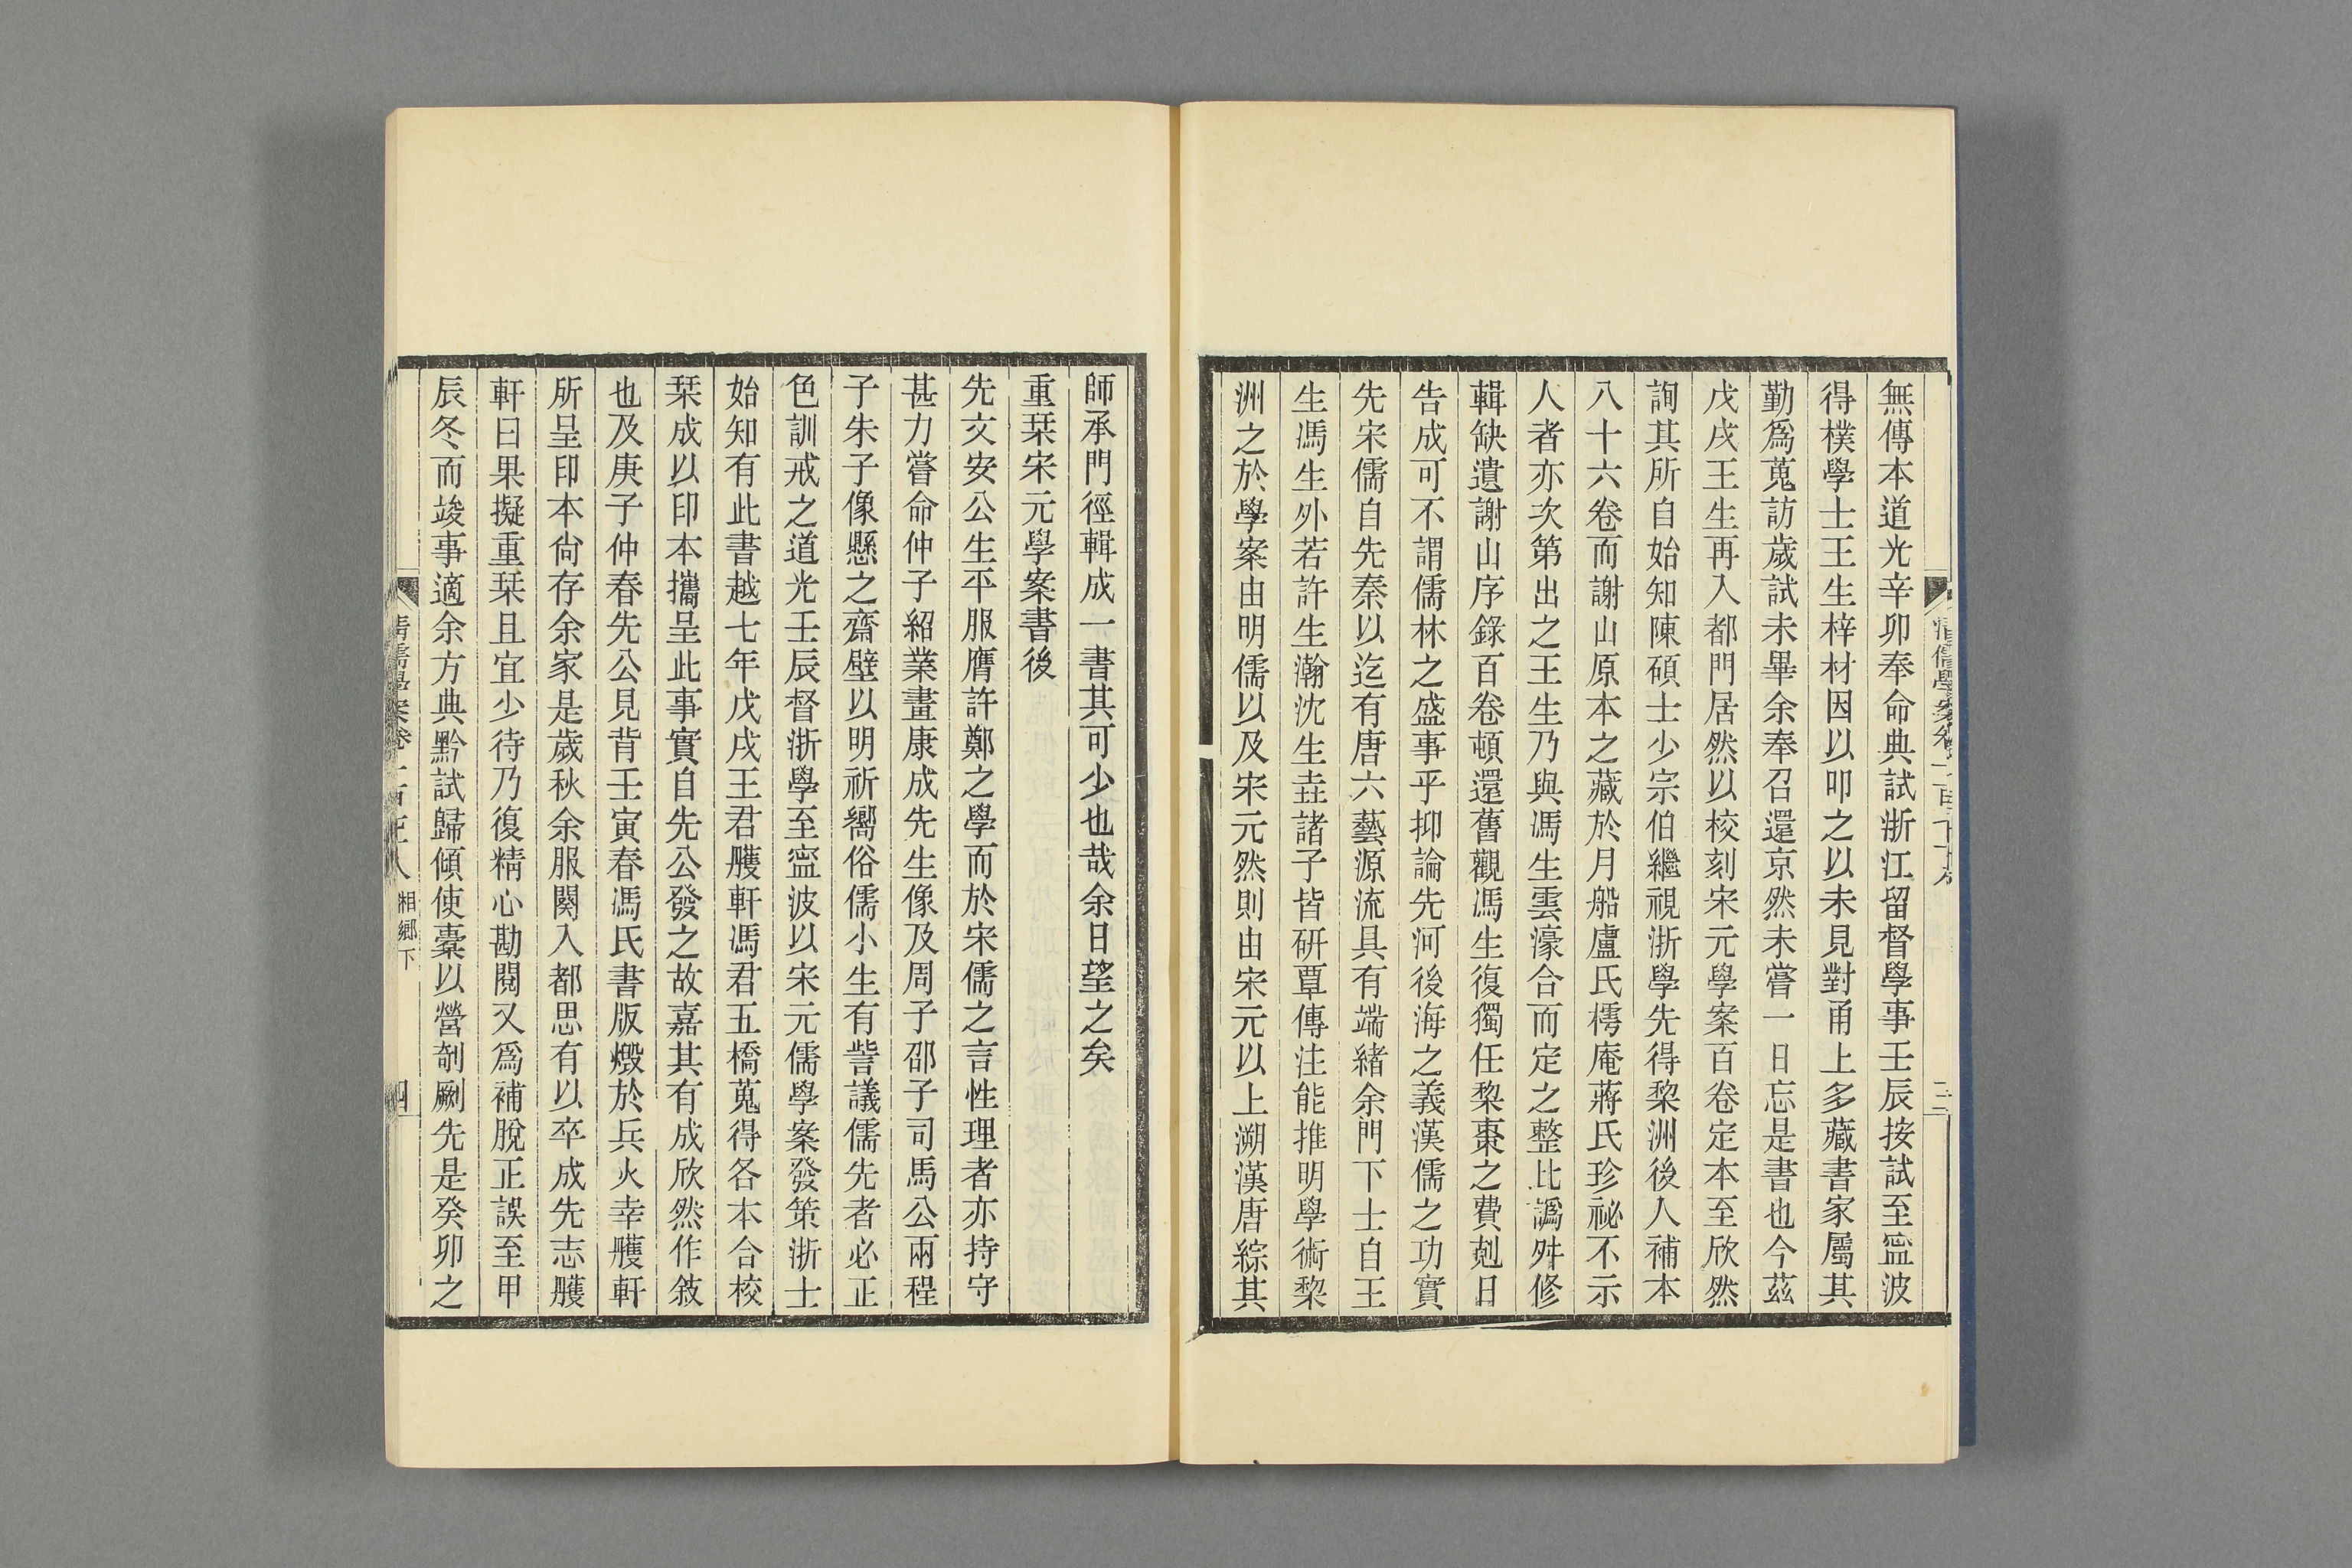 無傳本道光辛卯奉命典試浙江留督學事壬辰按試至寍波
得樸學士王生梓材因以叩之以未見對甬上多藏書家屬其
勤爲蒐訪歲試未畢余奉召還京然未嘗一日忘是書也今茲
戊戌王生再入都門居然以校刻宋元學案百卷定本至欣然
詢其所自始知陳碩士少宗伯繼視浙學先得棃洲後人補本
八十六卷而謝山原本之藏於月船盧氏樗庵蔣氏珍祕不示
人者亦次第出之王生乃與馮生雲濠合而定之整比譌舛修
輯缺遺謝山序錄百卷頓還舊觀馮生復獨任棃棗之費剋日
告成可不謂儒林之盛事乎抑論先河後海之義漢儒之功實
先宋儒自先秦以迄有唐六藝源流具有端緒余門下士自王
生馮生外若許生瀚沈生垚諸子皆研覃傳注能推明學術棃
洲之於學案由明儒以及宋元然則由宋元以上溯漢唐綜其
師承門徑輯成一書其可少也哉余日望之矣
重栞宋元學案書後
先文安公生平服膺許鄭之學而於宋儒之言性理者亦持守
甚力嘗命仲子紹業畫康成先生像及周子邵子司馬公兩程
子朱子像懸之齋壁以明祈嚮俗儒小生有訾議儒先者必正
色訓戒之道光壬辰督浙學至寍波以宋元儒學案發策浙士
始知有此書越七年戊戌王君雘軒馮君五橋蒐得各本合校
栞成以印本攜呈此事實自先公發之故嘉其有成欣然作敘
也及庚子仲春先公見背壬寅春馮氏書版燬於兵火幸雘軒
所呈印本尙存余家是歲秋余服闋入都思有以卒成先志雘
軒曰果擬重栞且宜少待乃復精心勘閱又爲補脫正誤至甲
辰冬而竣事適余方典黔試歸傾使橐以營剞劂先是癸卯之
清儒學案卷一百七十八 湘鄉下 四